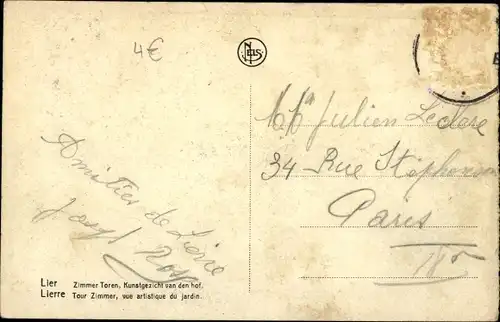 4€
NELS
Mr Julien Leclere
34 Rue Stephenson
Paris
Amitiés de Lierre
Lier Zimmer Toren, Kunstgezicht van den hof.
Lierre Tour Zimmer, vue artistique du jardin.